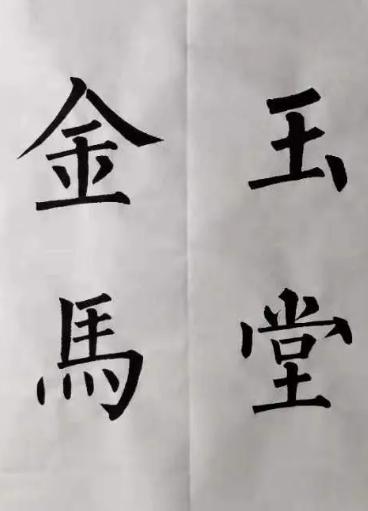 玉堂
金馬